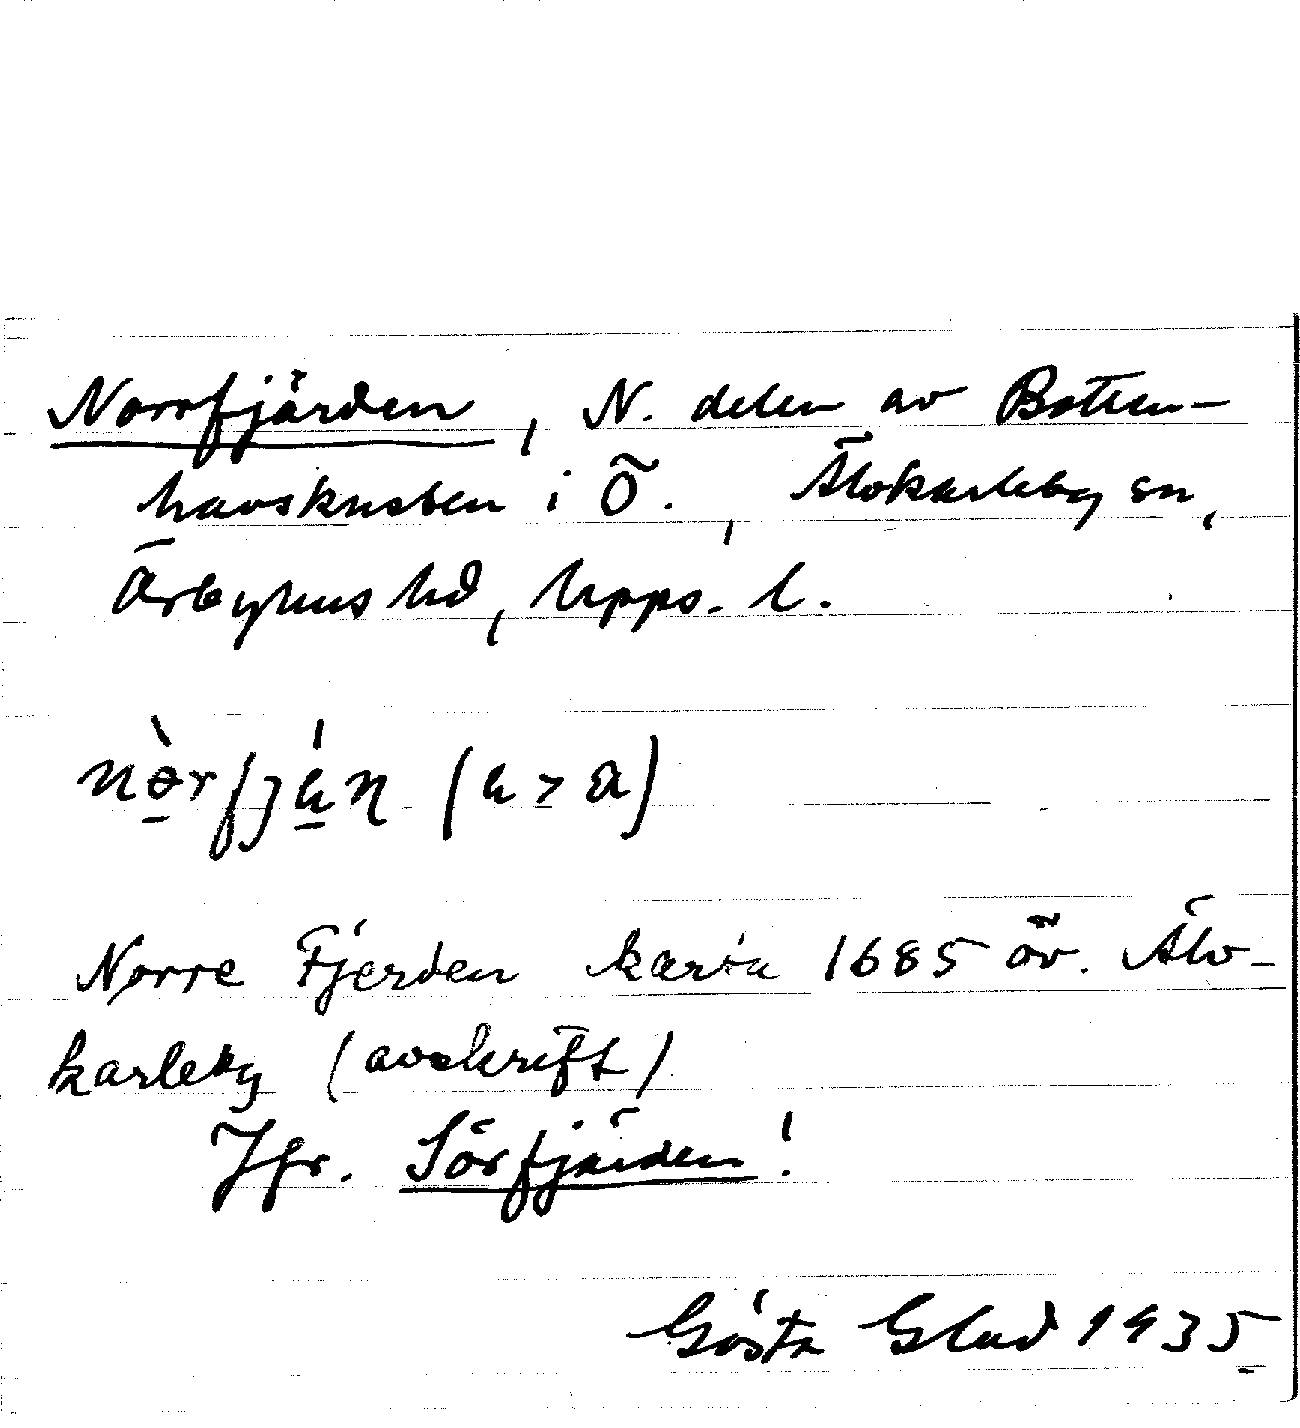 Norrfjärden, N. delen av Botten-
havskusten i Ö., Älvkarleby sn,
Örbyhus hd, Upps. l.
Norre Fjerden karta 1685 öv. Älv-
karleby (avskrift)
Jfr. Sörfjärden!
Gösta Glad 1935